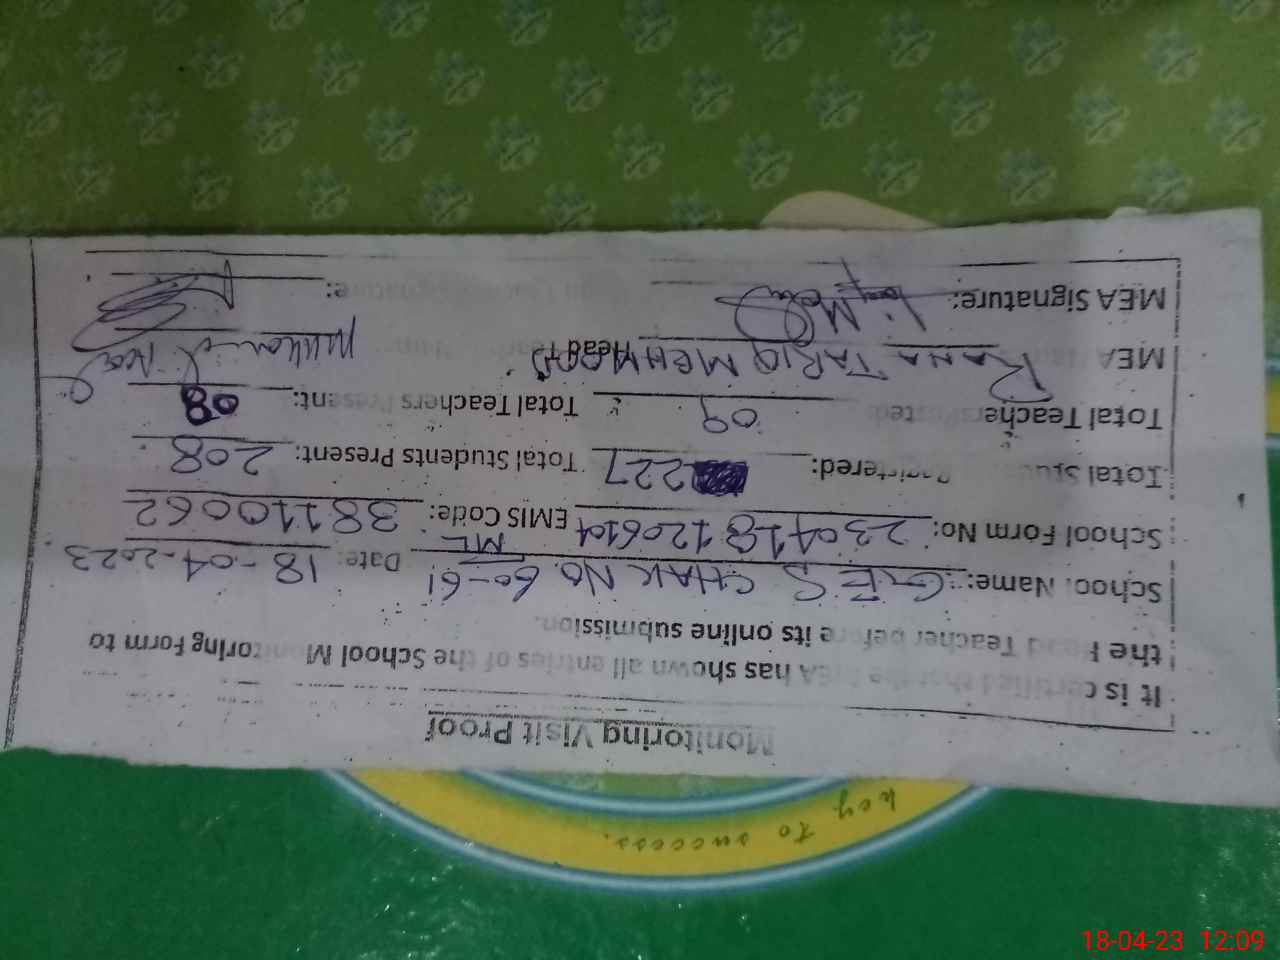 Monitoring Visit Proof
It is certified that the MEA has shown all entries of the School Monitoring Form to
the Head Teacher before its online submission.
School Name: GES CHAK NO. 60-61 ML Date: 18-04-2023
School Form No: 230418120614 EMIS Code: 38110062
Total Students Registered: 227 Total Students Present: 208
Total Teachers Posted: 09 Total Teachers Present: 08
MEA RANA TARIQ MEHMOOD Head
MEA Signature:
key to success.
18-04-23 12:09